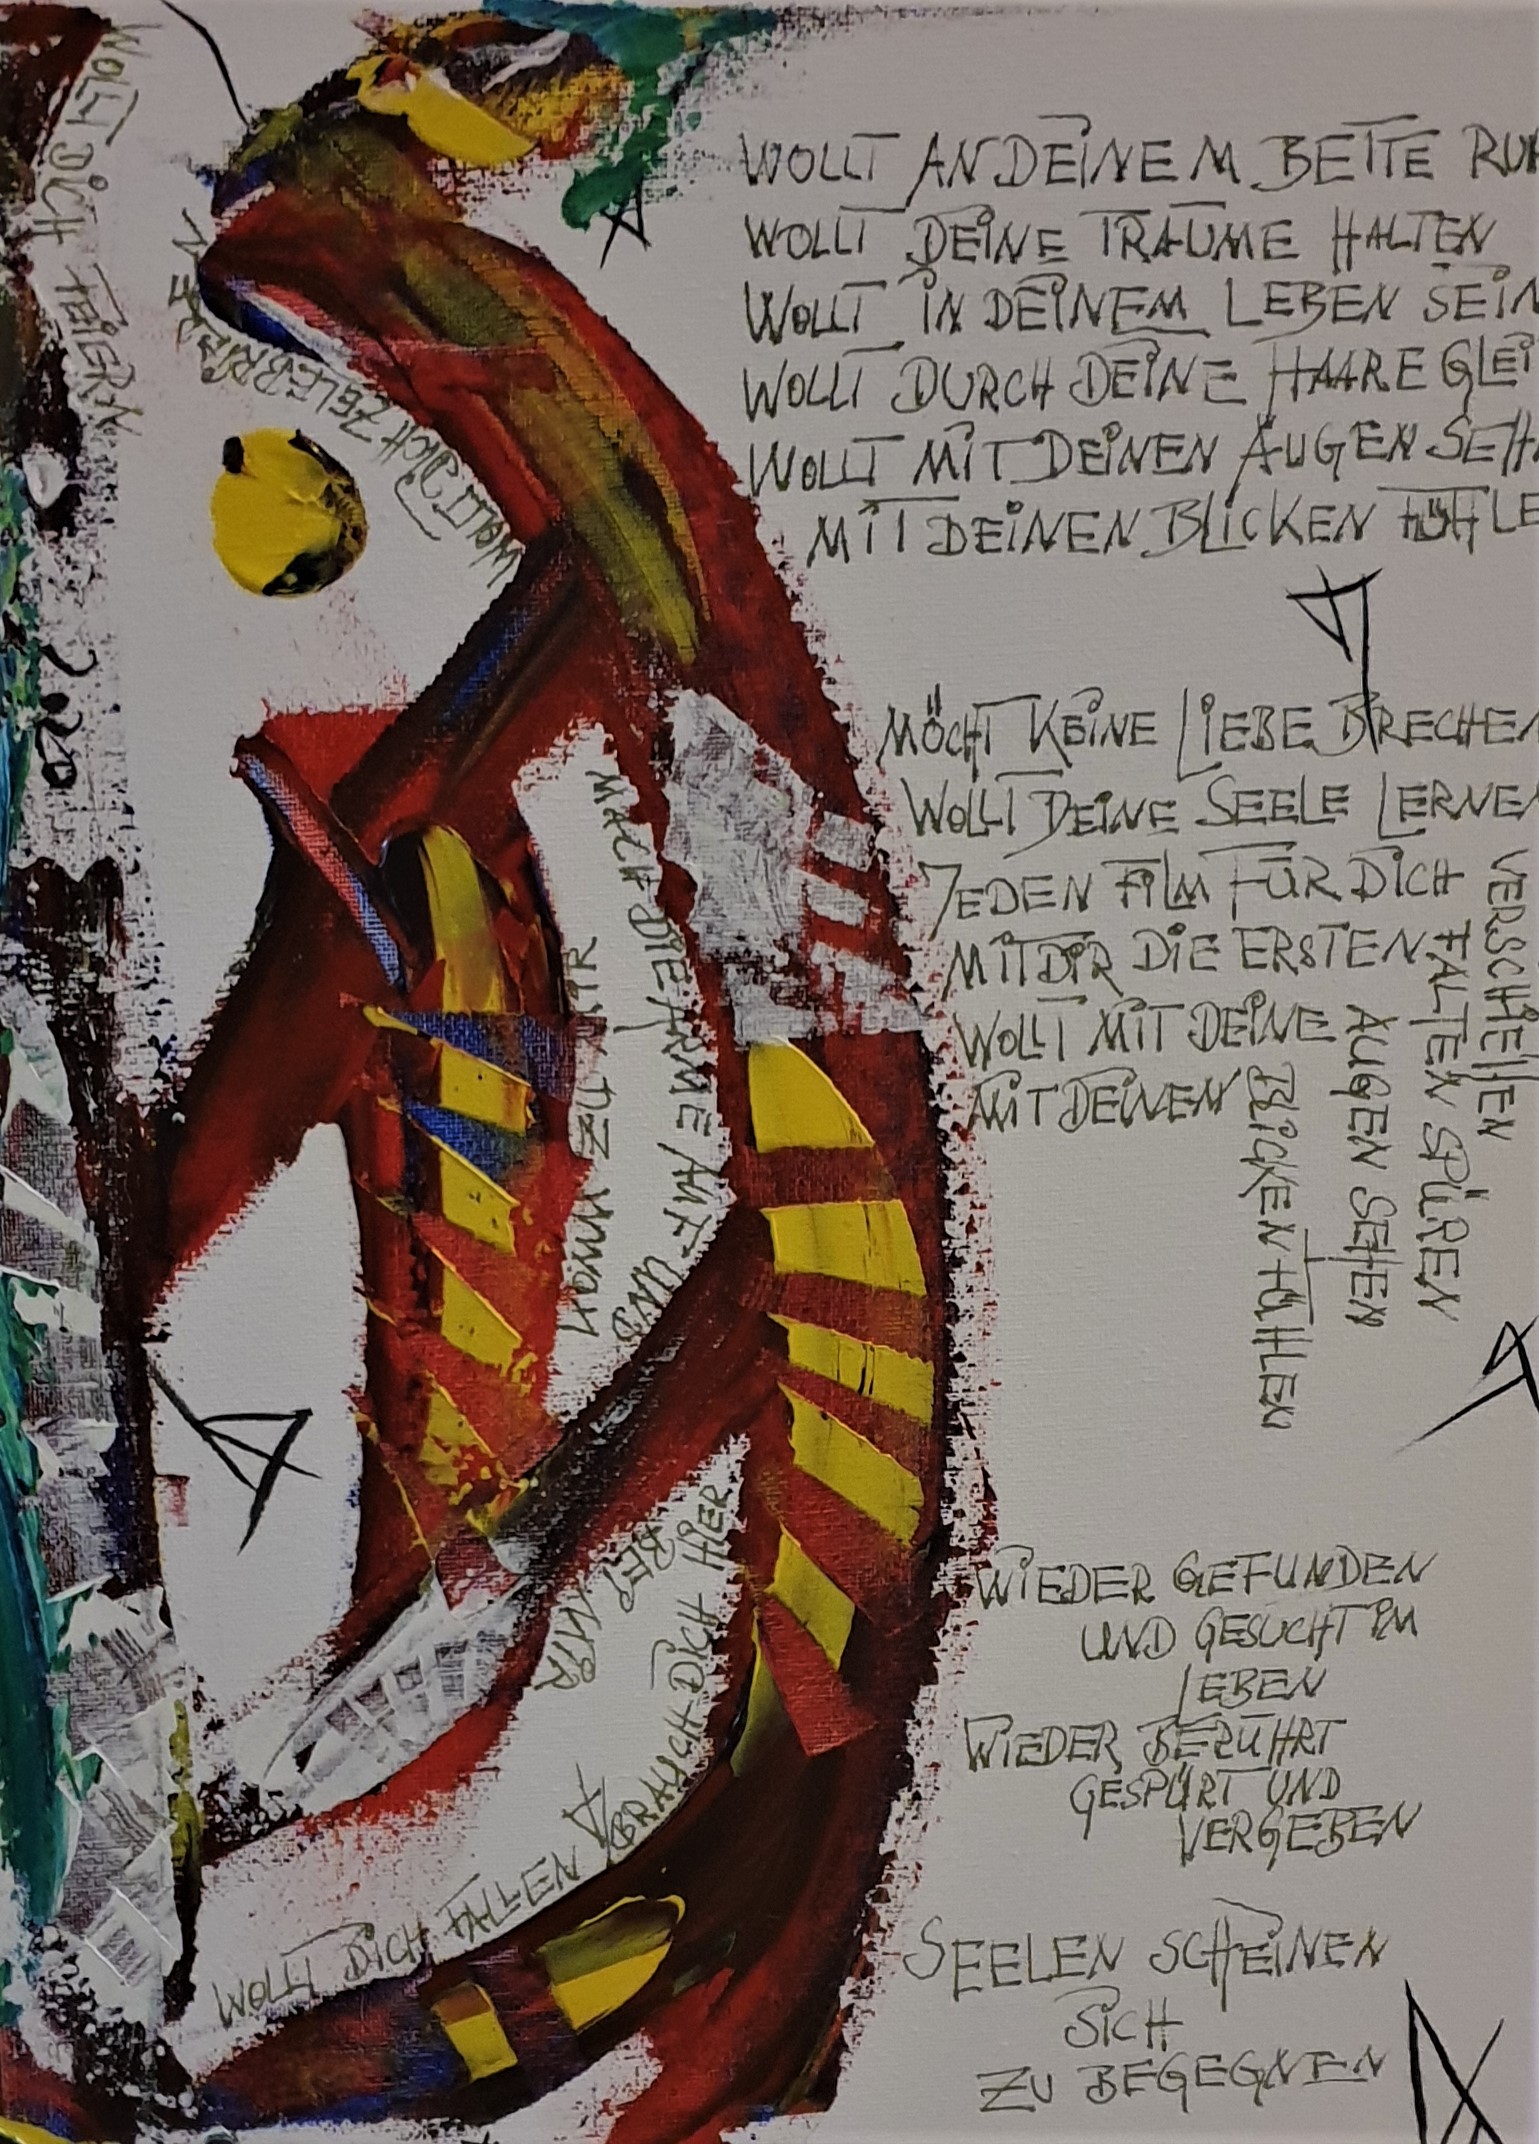 WOLLT AN DEINEM BETTE RUH
WOLLT DEINE TRÄUME HALTEN
WOLLT IN DEINEM LEBEN SEIN
WOLLT DURCH DEINE HAARE GLEI
WOLLT MIT DEINEN AUGEN SEH
MIT DEINEN BLICKEN FÜHLE
MÖCHT KEINE LIEBE BRECHEN
WOLLT DEINE SEELE LERNEN
JEDEN FILM FÜR DICH VERSCHIEẞEN
MIT DIR DIE ERSTEN FALTEN SPÜREN
WOLLT MIT DEINE AUGEN SEHEN
MIT DEINEN BLICKEN FÜHLEN
WIEDER GEFUNDEN
UND GESUCHT IM
LEBEN
WIEDER BERÜHRT
GESPÜRT UND
VERGEBEN
SEELEN SCHEINEN
SICH
ZU BEGEGNEN
WOLLT DICH FEIERN
WOLLT DICH ZELEBRIEREN
MACH DIE ARME AUF UND
KOMM ZU MIR
WOLLT DICH FALLEN
BRAUCH DICH HIER
BEI MIR